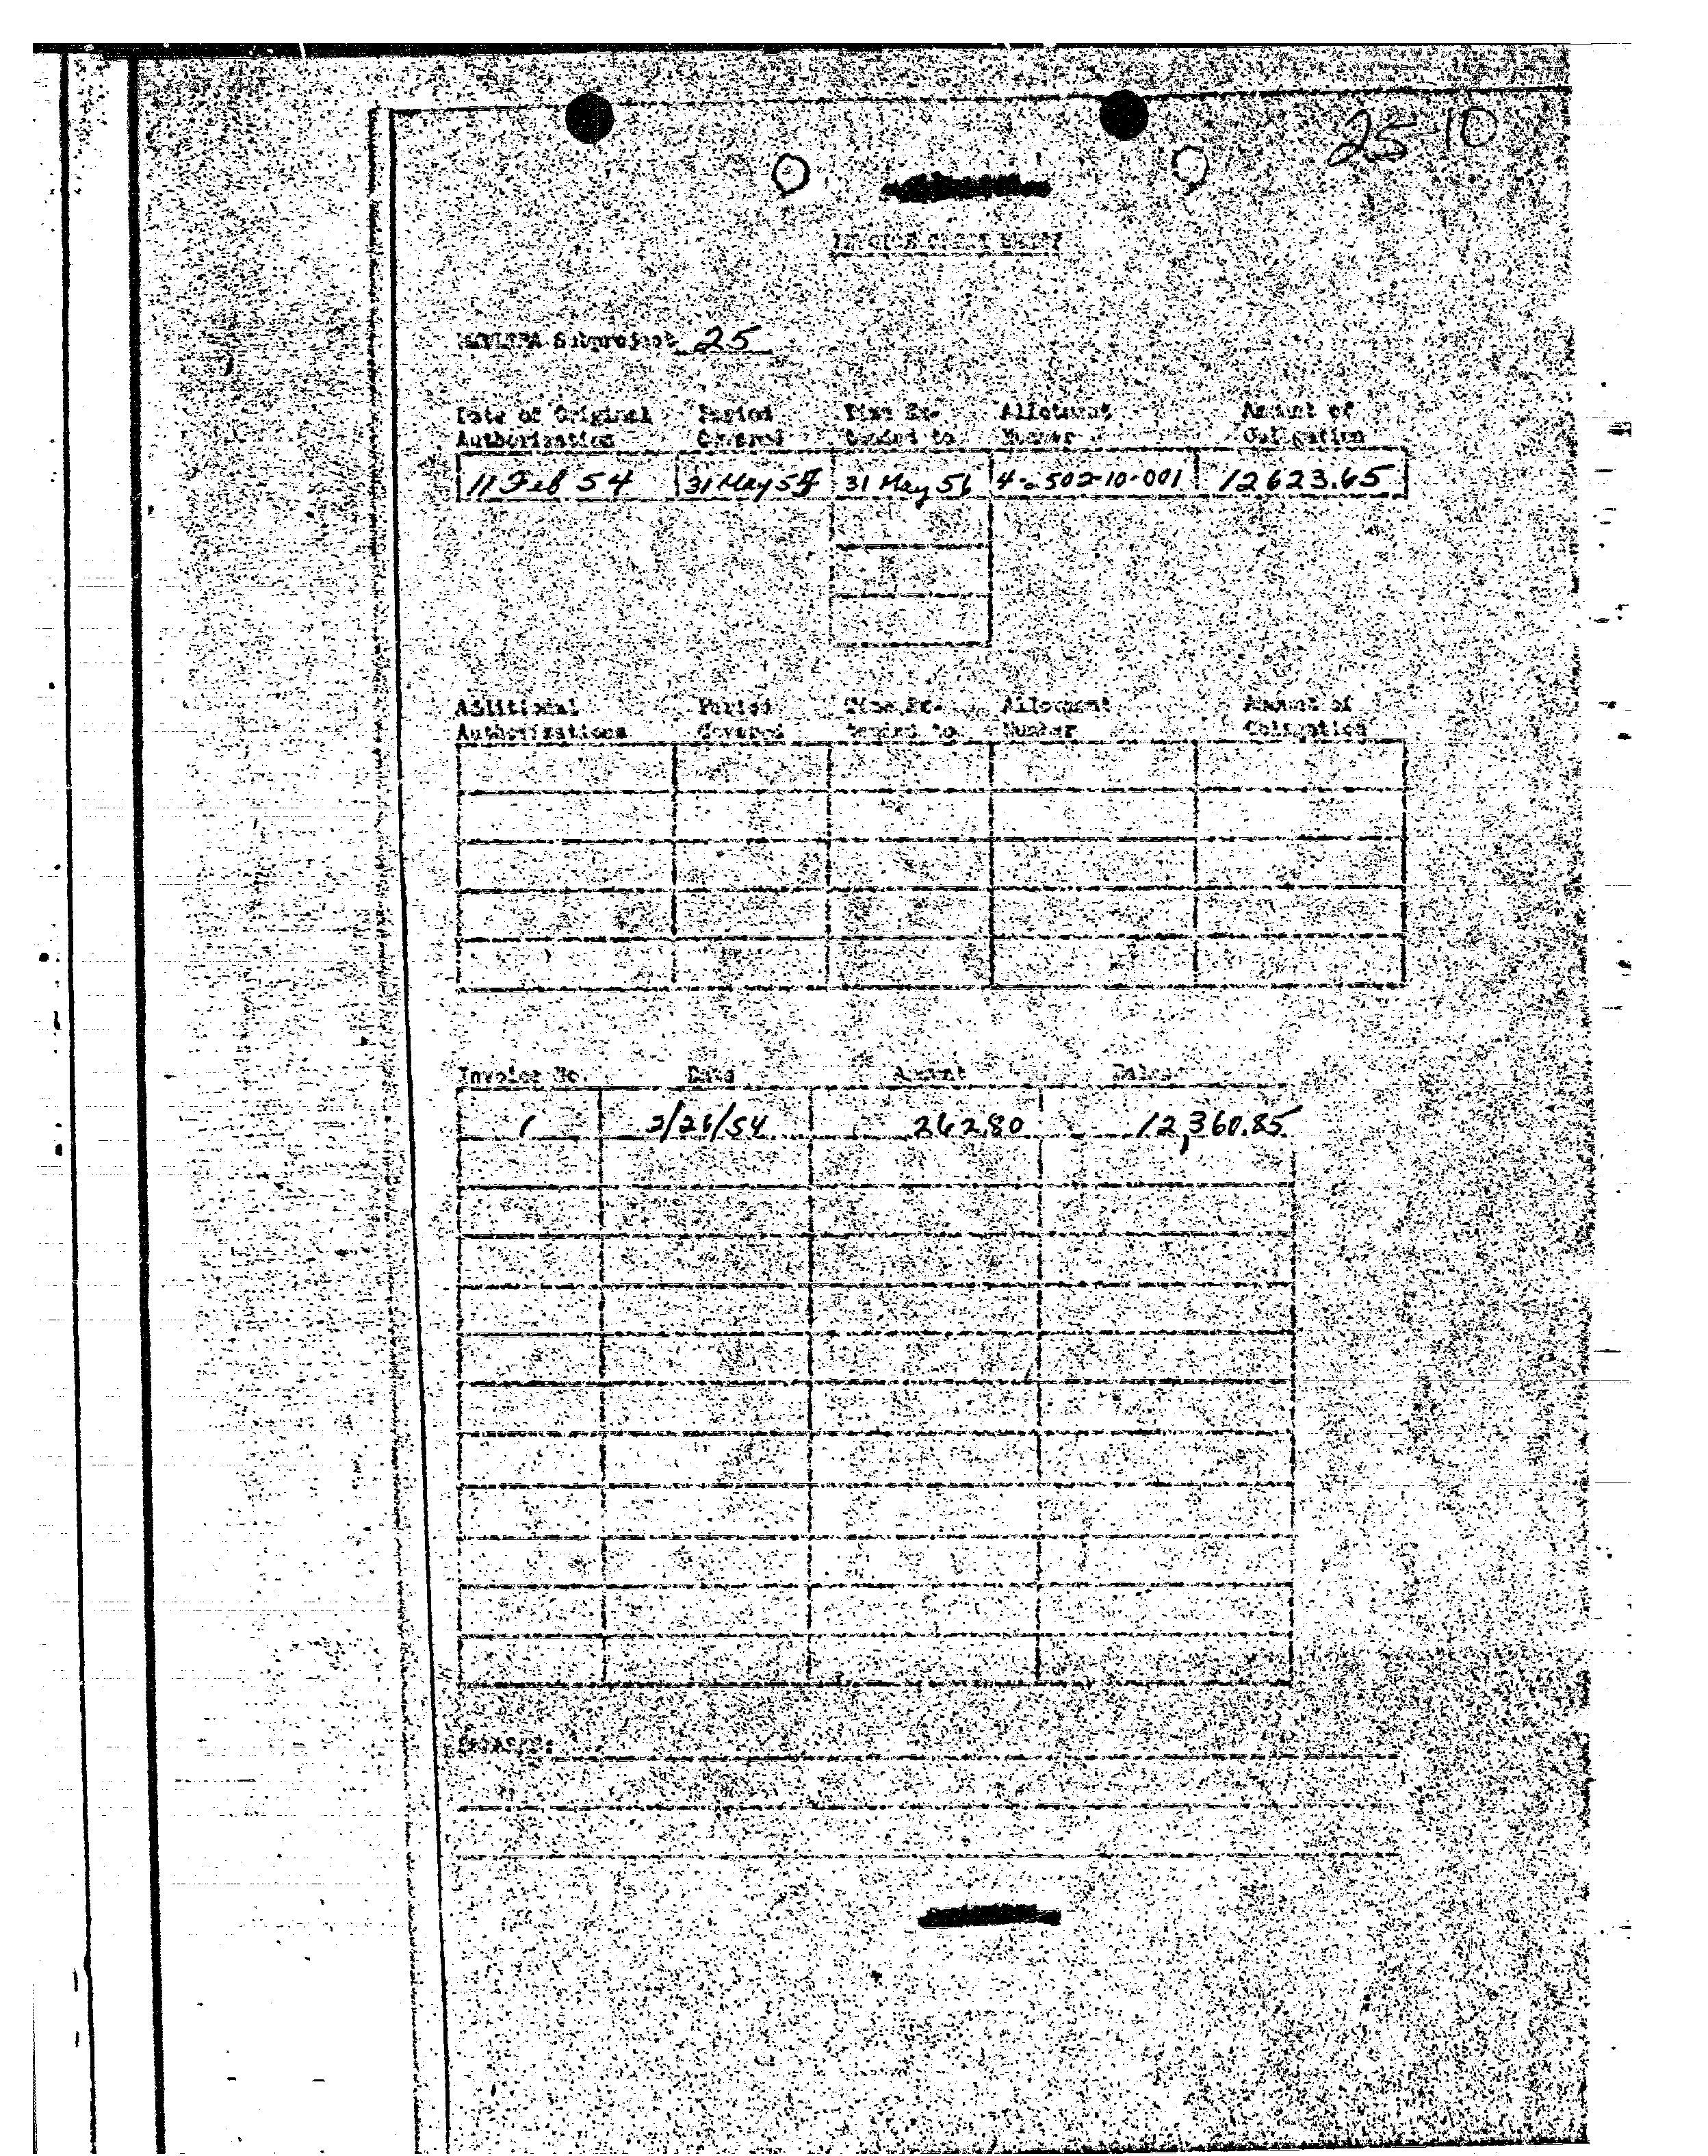 25-10
INVOICE CHECK SHEET
MKULTRA Subproject 25
Date of Original Authorization Period Covered Time Ex-tended to Allotment Number Amount of Obligation
11 Feb 54 31 May 54 31 May 56 4-2502-10-001 12623.65
Additional Authorizations Period Covered Time Ex-tended to Allotment Number Amount of Obligation
Invoice No Date Amount
1 2/26/54 262.80 12,360.85
REMARKS: